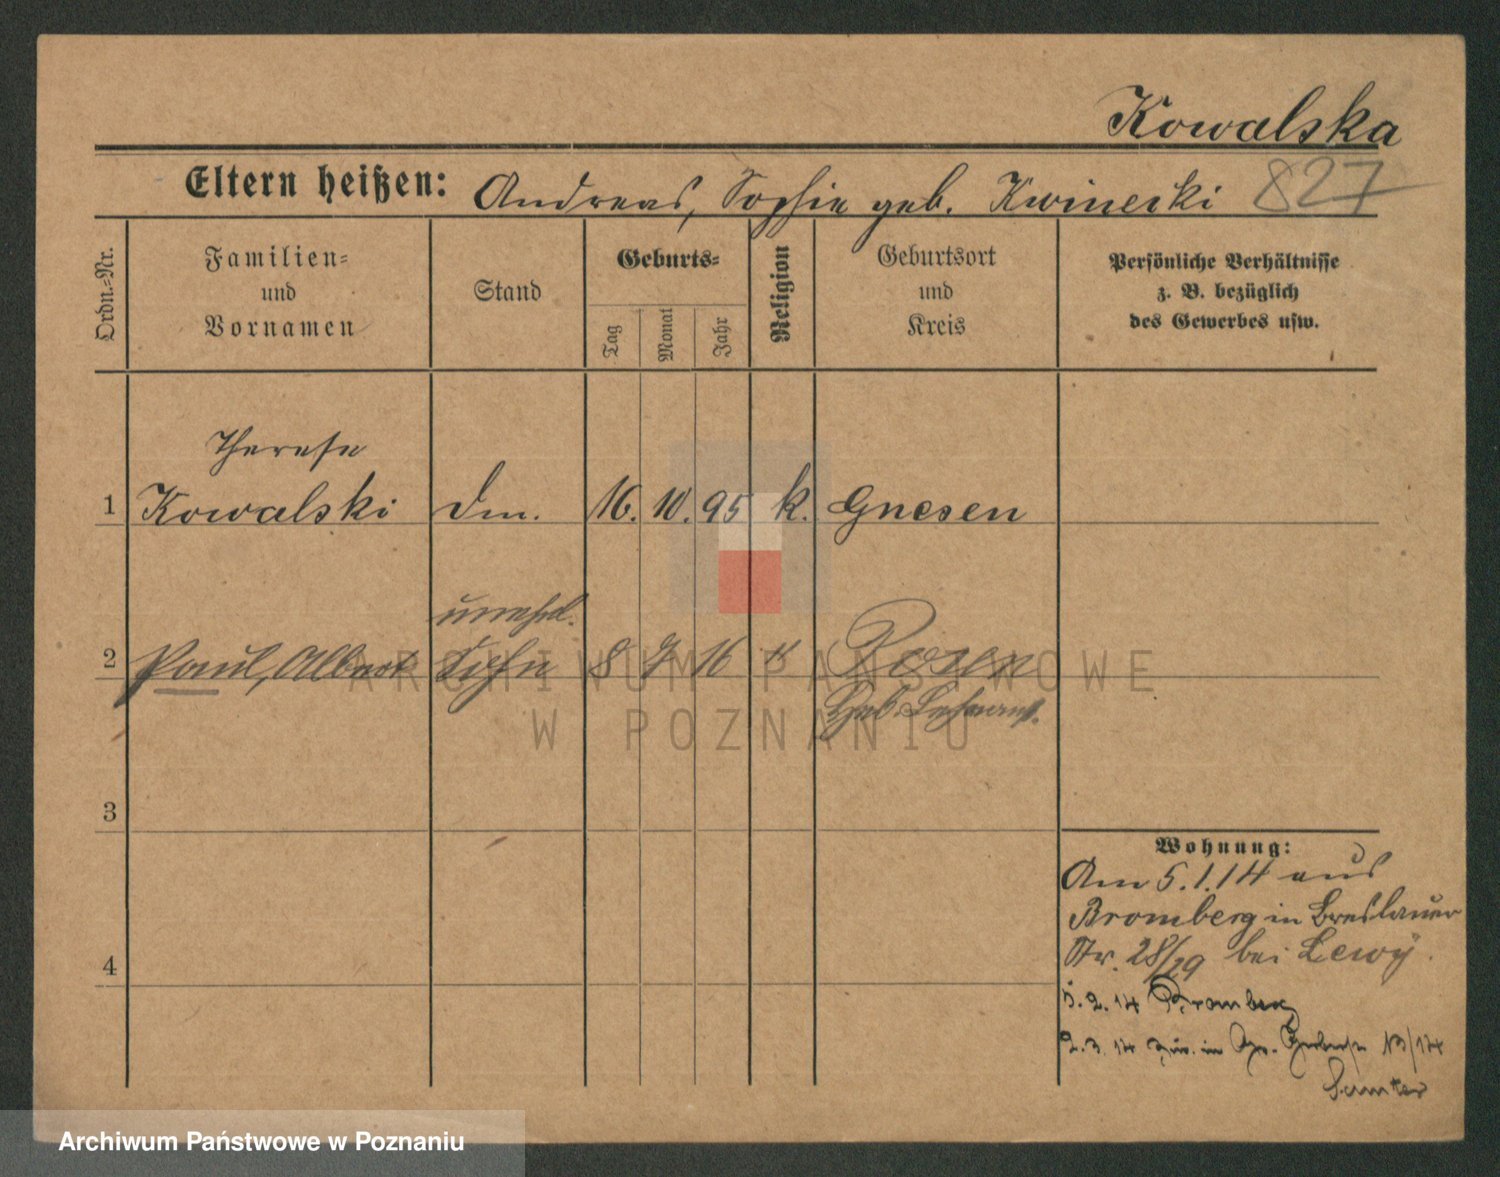 Kowalska
Eltern heißen: Andreas, Sophie geb. Kwinecki 827
Ordn.-Nr.
Familien-
und
Vornamen
Stand
Geburts-
Tag
Monat
Jahr
Religion
Geburtsort
und
Kreis
Persönliche Verhältnisse
z. B. bezüglich
des Gewerbes usw.
Therese
1 Kowalski Dm. 16. 10. 95 k. Gnesen
unehel.
2 Paul, Albert Sohn 8 7 16 " Posen
Geb. Lehranst.
3
4
Wohnung:
Am 5.1.14 aus
Bromberg in Breslauer
Str. 28/29 bei Lewy.
5.2.14 Bromberg
2.3.14 zur. in Gr. 13/14
Samter
ARCHIWUM PAŃSTWOWE
W POZNANIU
Archiwum Państwowe w Poznaniu